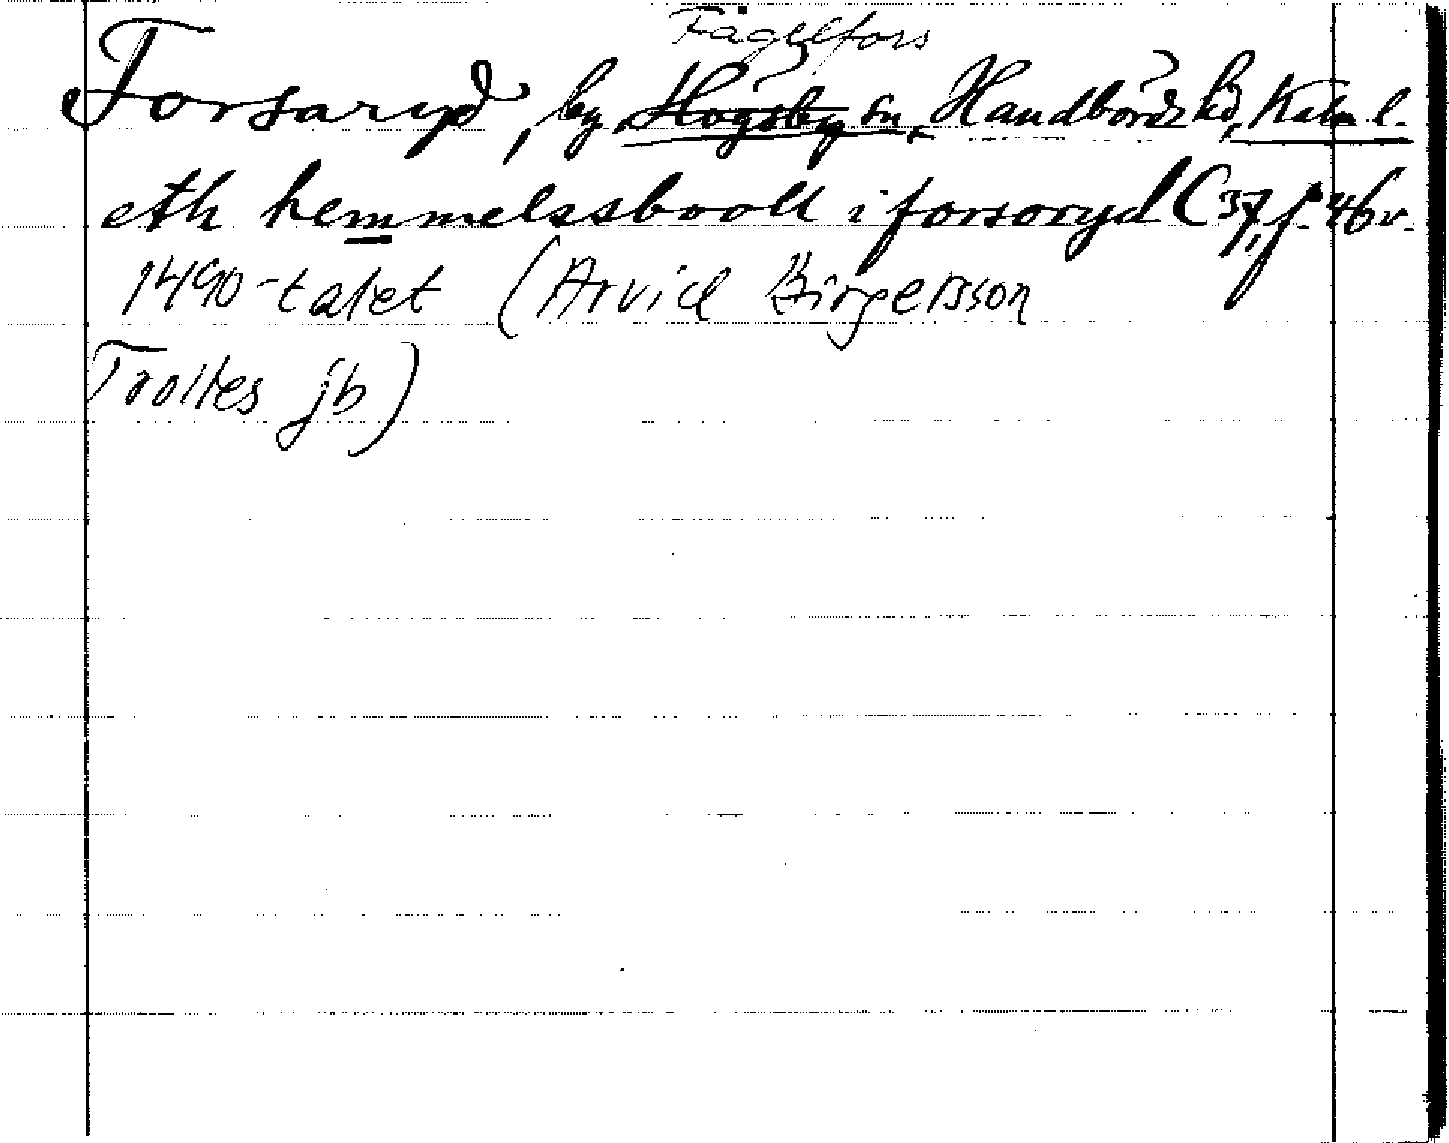 Fågelfors
Forsaryd, by, Högsby sn, Handbörds hd, Kalm l.
eth hemmelssbooll i forsoryd C 37, f. 46 v.
1490-talet (Arvid Birgersson
Trolles jb)